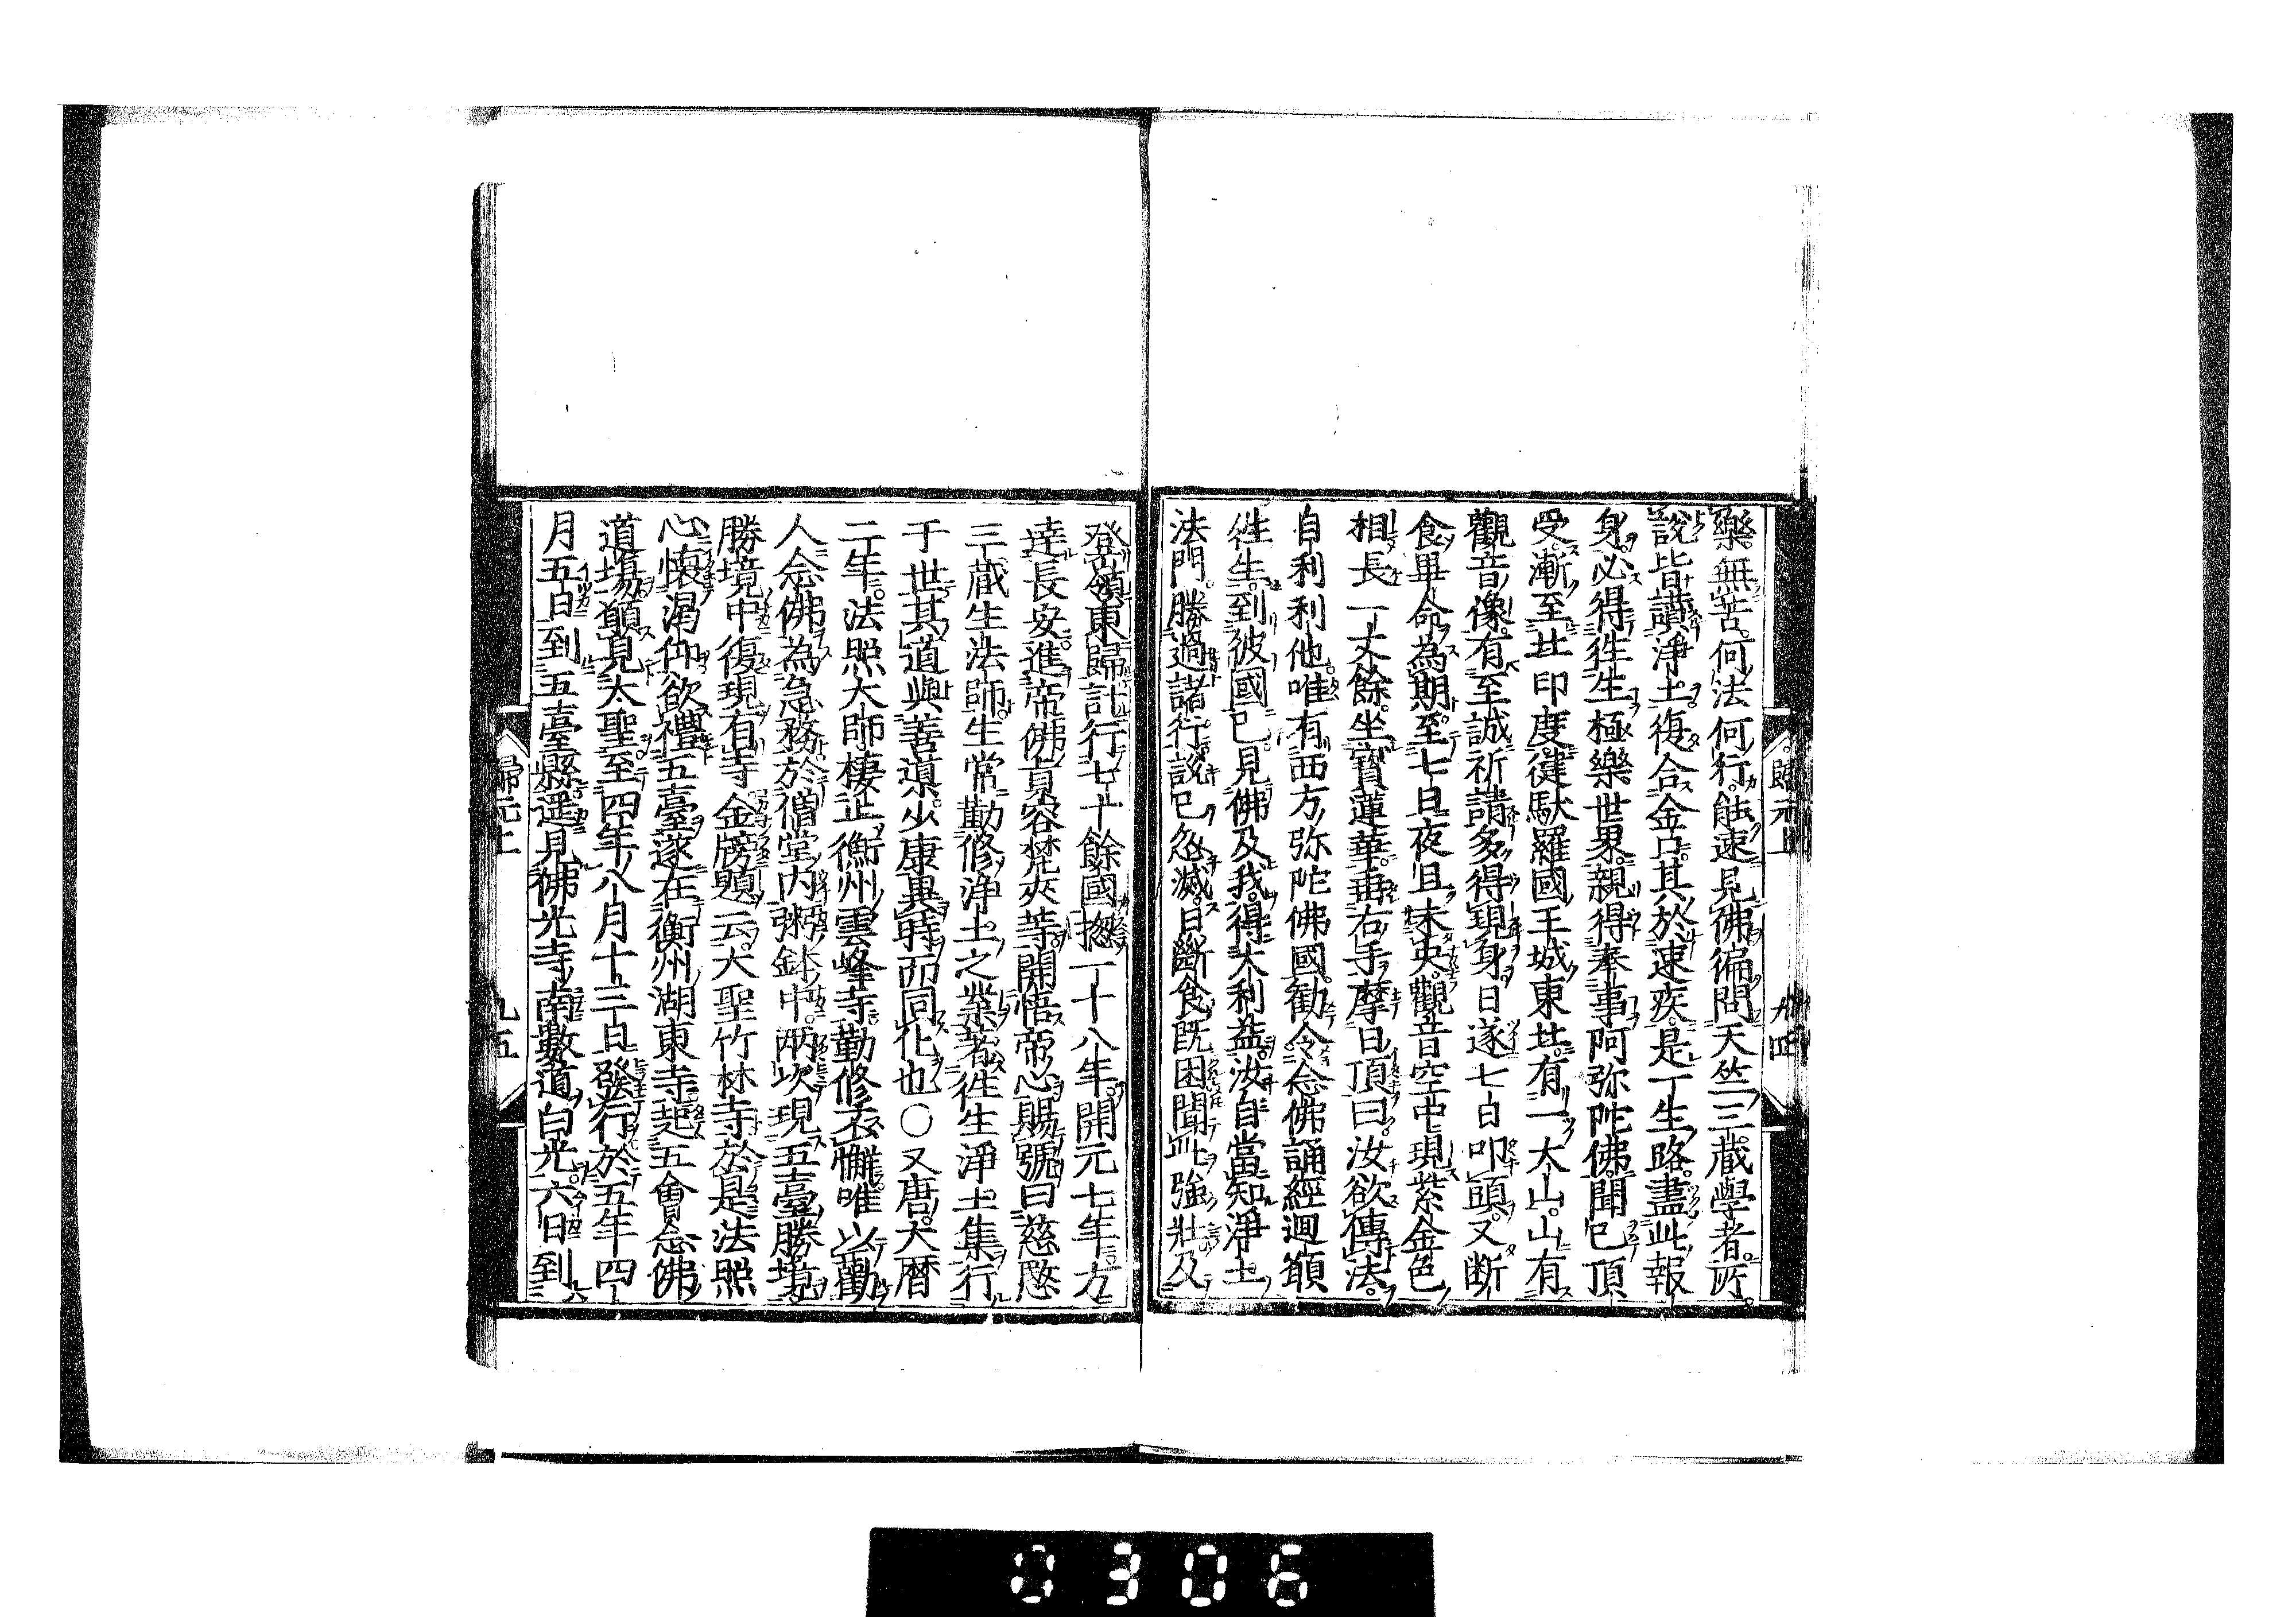 樂無苦何法何行能速見佛徧問天竺三藏學者所
說皆讚淨土復合金口其於速疾是一生路盡此報
身必得徃生極樂世界親得奉事阿弥陀佛聞已頂
受漸至北印度健馱羅國王城東北有一大山山有
觀音像有至誠祈請多得現身日遂七日叩頭又断
食畢命為期至七日夜且未央觀音空中現紫金色
相長一丈餘坐寳蓮華垂右手摩日頂曰汝欲傳法
自利利他唯有西方弥陀佛國勸令念佛誦經迴願
徃生到彼國已見佛及我得大利益汝自當知淨土
法門勝過諸行說已忽滅日斷食既困聞此強壯及
歸元上
九四
登嶺東歸計行七十餘國揔一十八年開元七年方
達長安進帝佛真容梵夾等開悟帝心賜號曰慈愍
三藏生法師生常勤修淨土之業著徃生淨土集行
于世其道與善導少康異時而同化也○又唐大曆
二年法照大師棲止衡州雲峰寺勤修不懈唯以勸
人念佛為急務於僧堂內粥鉢中兩次現五臺勝境
勝境中復現有寺金牓題云大聖竹林寺於是法照
心懷渴仰欲禮五臺遂在衡州湖東寺起五會念佛
道場願見大聖至四年八月十三日發行於五年四
月五日到五臺縣遥見佛光寺南數道白光六日到
歸元上
九五
0306